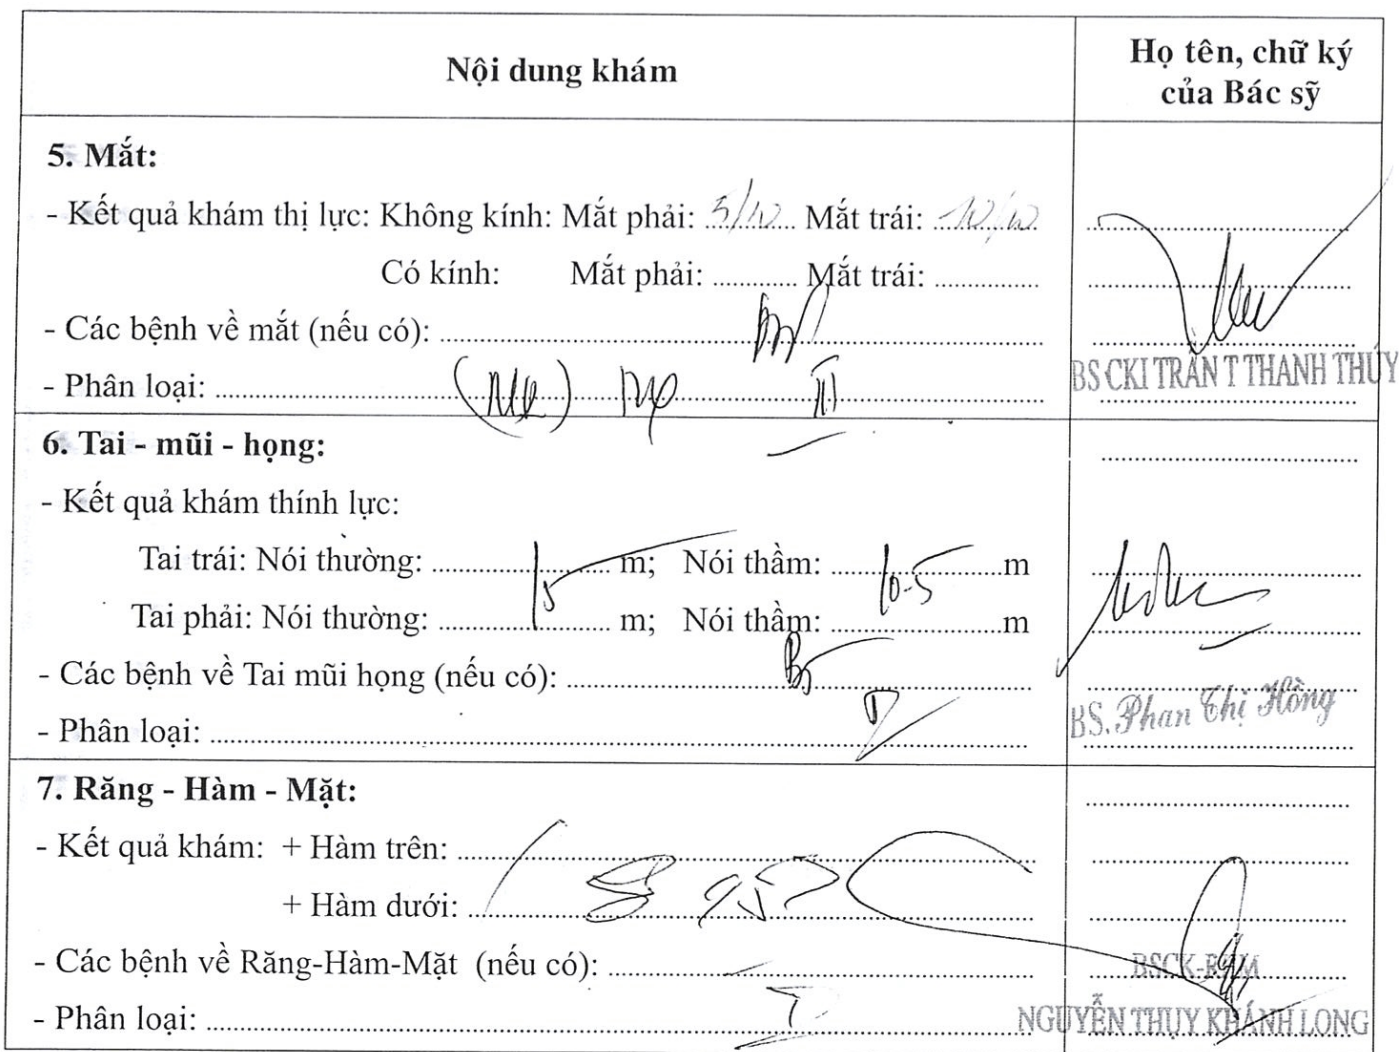 Nội dung khám
Họ tên, chữ ký
của Bác sỹ
5. Mắt:
- Kết quả khám thị lực: Không kính: Mắt phải: 5/10 Mắt trái: 10/10
Có kính: Mắt phải: ............ Mắt trái: ............
- Các bệnh về mắt (nếu có):
- Phân loại: II
BS CKI TRẦN T THANH THỦY
6. Tai - mũi - họng:
- Kết quả khám thính lực:
Tai trái: Nói thường: 5 m; Nói thầm: 0.5 m
Tai phải: Nói thường: m; Nói thầm: m
- Các bệnh về Tai mũi họng (nếu có):
- Phân loại:
BS. Phan Thị Hồng
7. Răng - Hàm - Mặt:
- Kết quả khám: + Hàm trên:
+ Hàm dưới:
- Các bệnh về Răng-Hàm-Mặt (nếu có):
BSCK-RHM
- Phân loại: I
NGUYỄN THỤY KHÁNH LONG